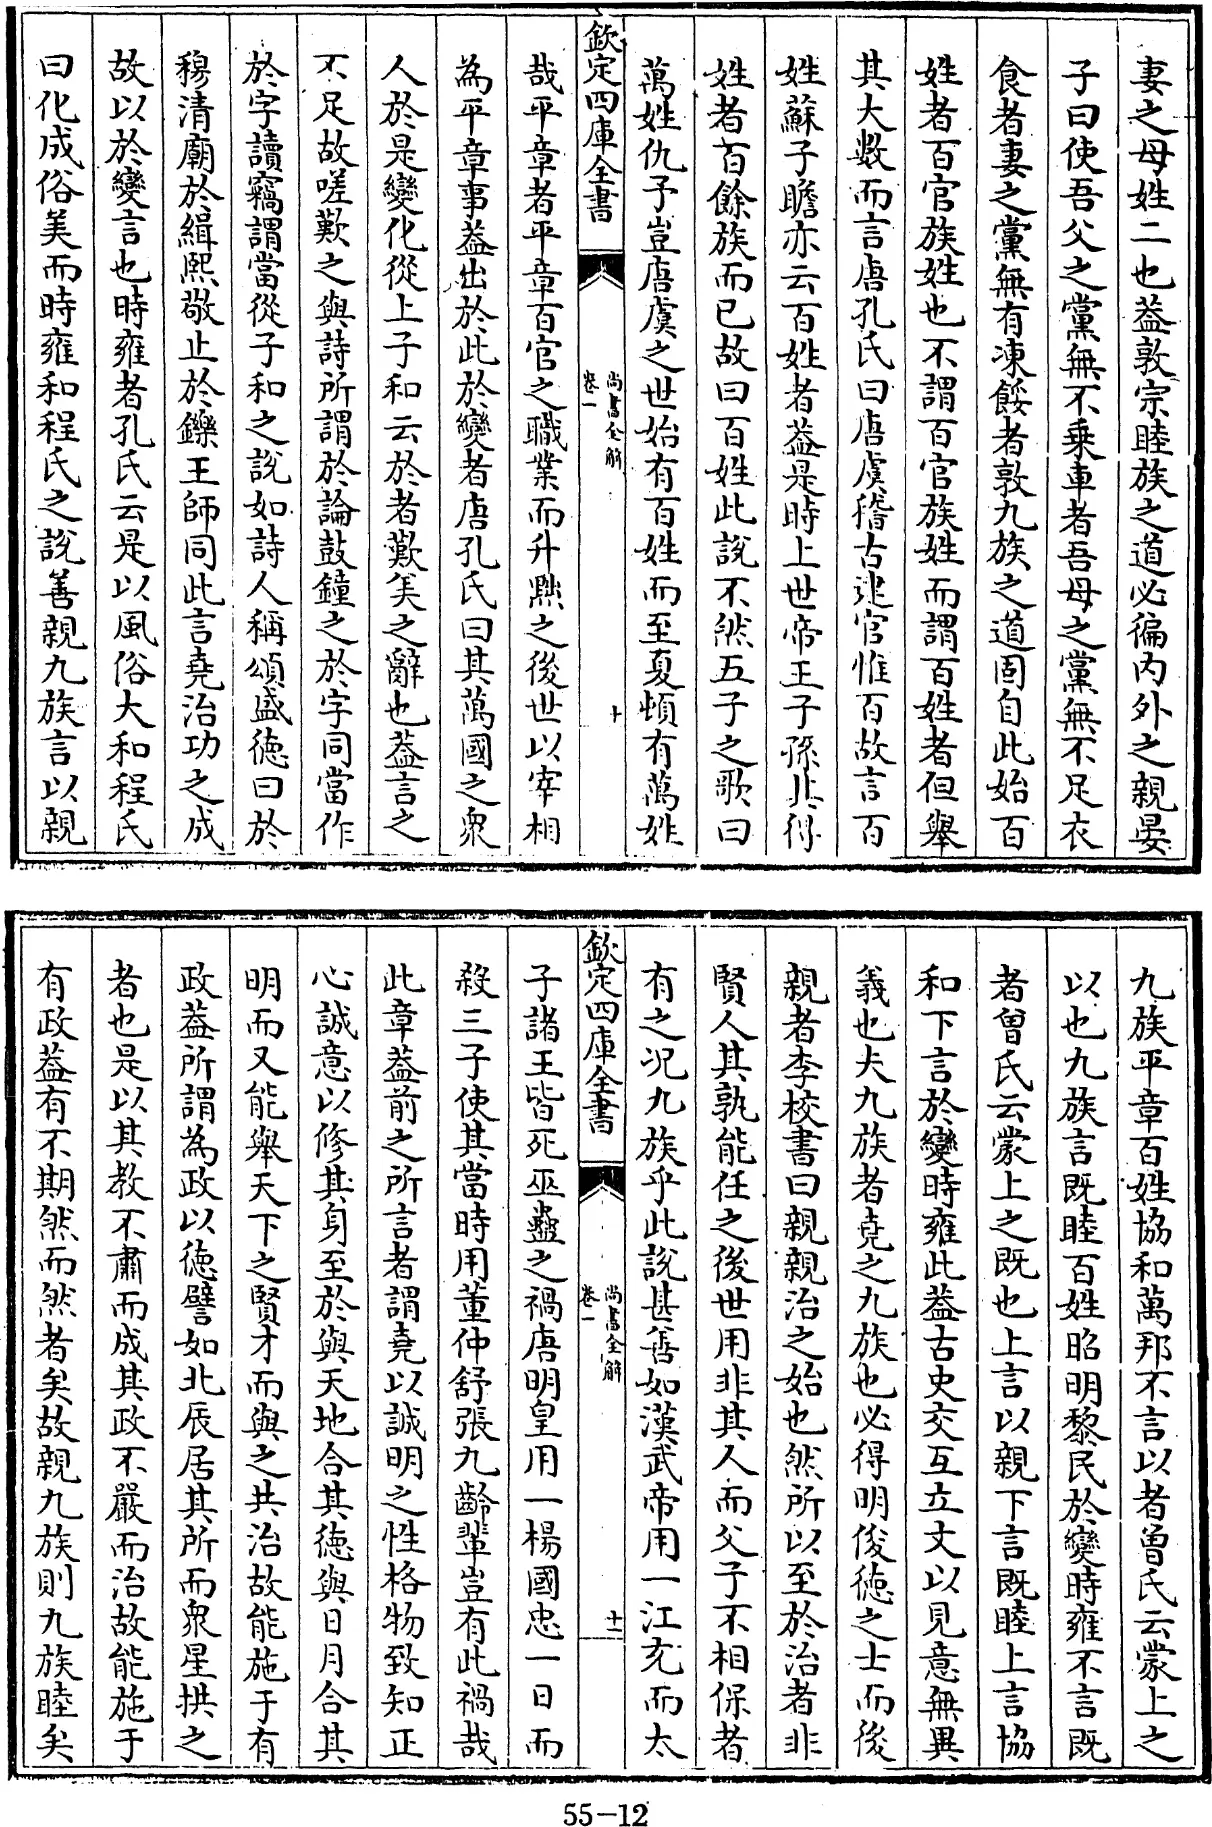 妻之母姓二也葢敦宗睦族之道必徧内外之親晏
子曰使吾父之黨無不乗車者吾母之黨無不足衣
食者妻之黨無有凍餒者敦九族之道固自此始百
姓者百官族姓也不謂百官族姓而謂百姓者但舉
其大數而言唐孔氏曰唐虞稽古建官惟百故言百
姓蘇子瞻亦云百姓者葢是時上世帝王子孫其得
姓者百餘族而已故曰百姓此說不然五子之歌曰
萬姓仇予豈唐虞之世始有百姓而至夏頓有萬姓
欽定四庫全書
尚書全解
卷一
十
哉平章者平章百官之職業而升黜之後世以宰相
為平章事葢出於此於變者唐孔氏曰其萬國之衆
人於是變化從上子和云於者歎美之辭也葢言之
不足故嗟歎之與詩所謂於論鼓鐘之於字同當作
於字讀竊謂當從子和之說如詩人稱頌盛徳曰於
穆清廟於緝熙敬止於鑠王師同此言堯治功之成
故以於變言也時雍者孔氏云是以風俗大和程氏
曰化成俗美而時雍和程氏之說善親九族言以親
九族平章百姓協和萬邦不言以者曾氏云蒙上之
以也九族言既睦百姓昭明黎民於變時雍不言既
者曾氏云蒙上之既也上言以親下言既睦上言協
和下言於變時雍此葢古史交互立文以見意無異
義也夫九族者堯之九族也必得明俊徳之士而後
親者李校書曰親親治之始也然所以至於治者非
賢人其孰能任之後世用非其人而父子不相保者
有之况九族乎此說甚善如漢武帝用一江充而太
欽定四庫全書
尚書全解
卷一
十一
子諸王皆死巫蠱之禍唐明皇用一楊國忠一日而
殺三子使其當時用董仲舒張九齡輩豈有此禍哉
此章葢前之所言者謂堯以誠明之性格物致知正
心誠意以修其身至於與天地合其徳與日月合其
明而又能舉天下之賢才而與之共治故能施于有
政葢所謂為政以徳譬如北辰居其所而衆星拱之
者也是以其教不肅而成其政不嚴而治故能施于
有政葢有不期然而然者矣故親九族則九族睦矣
55-12